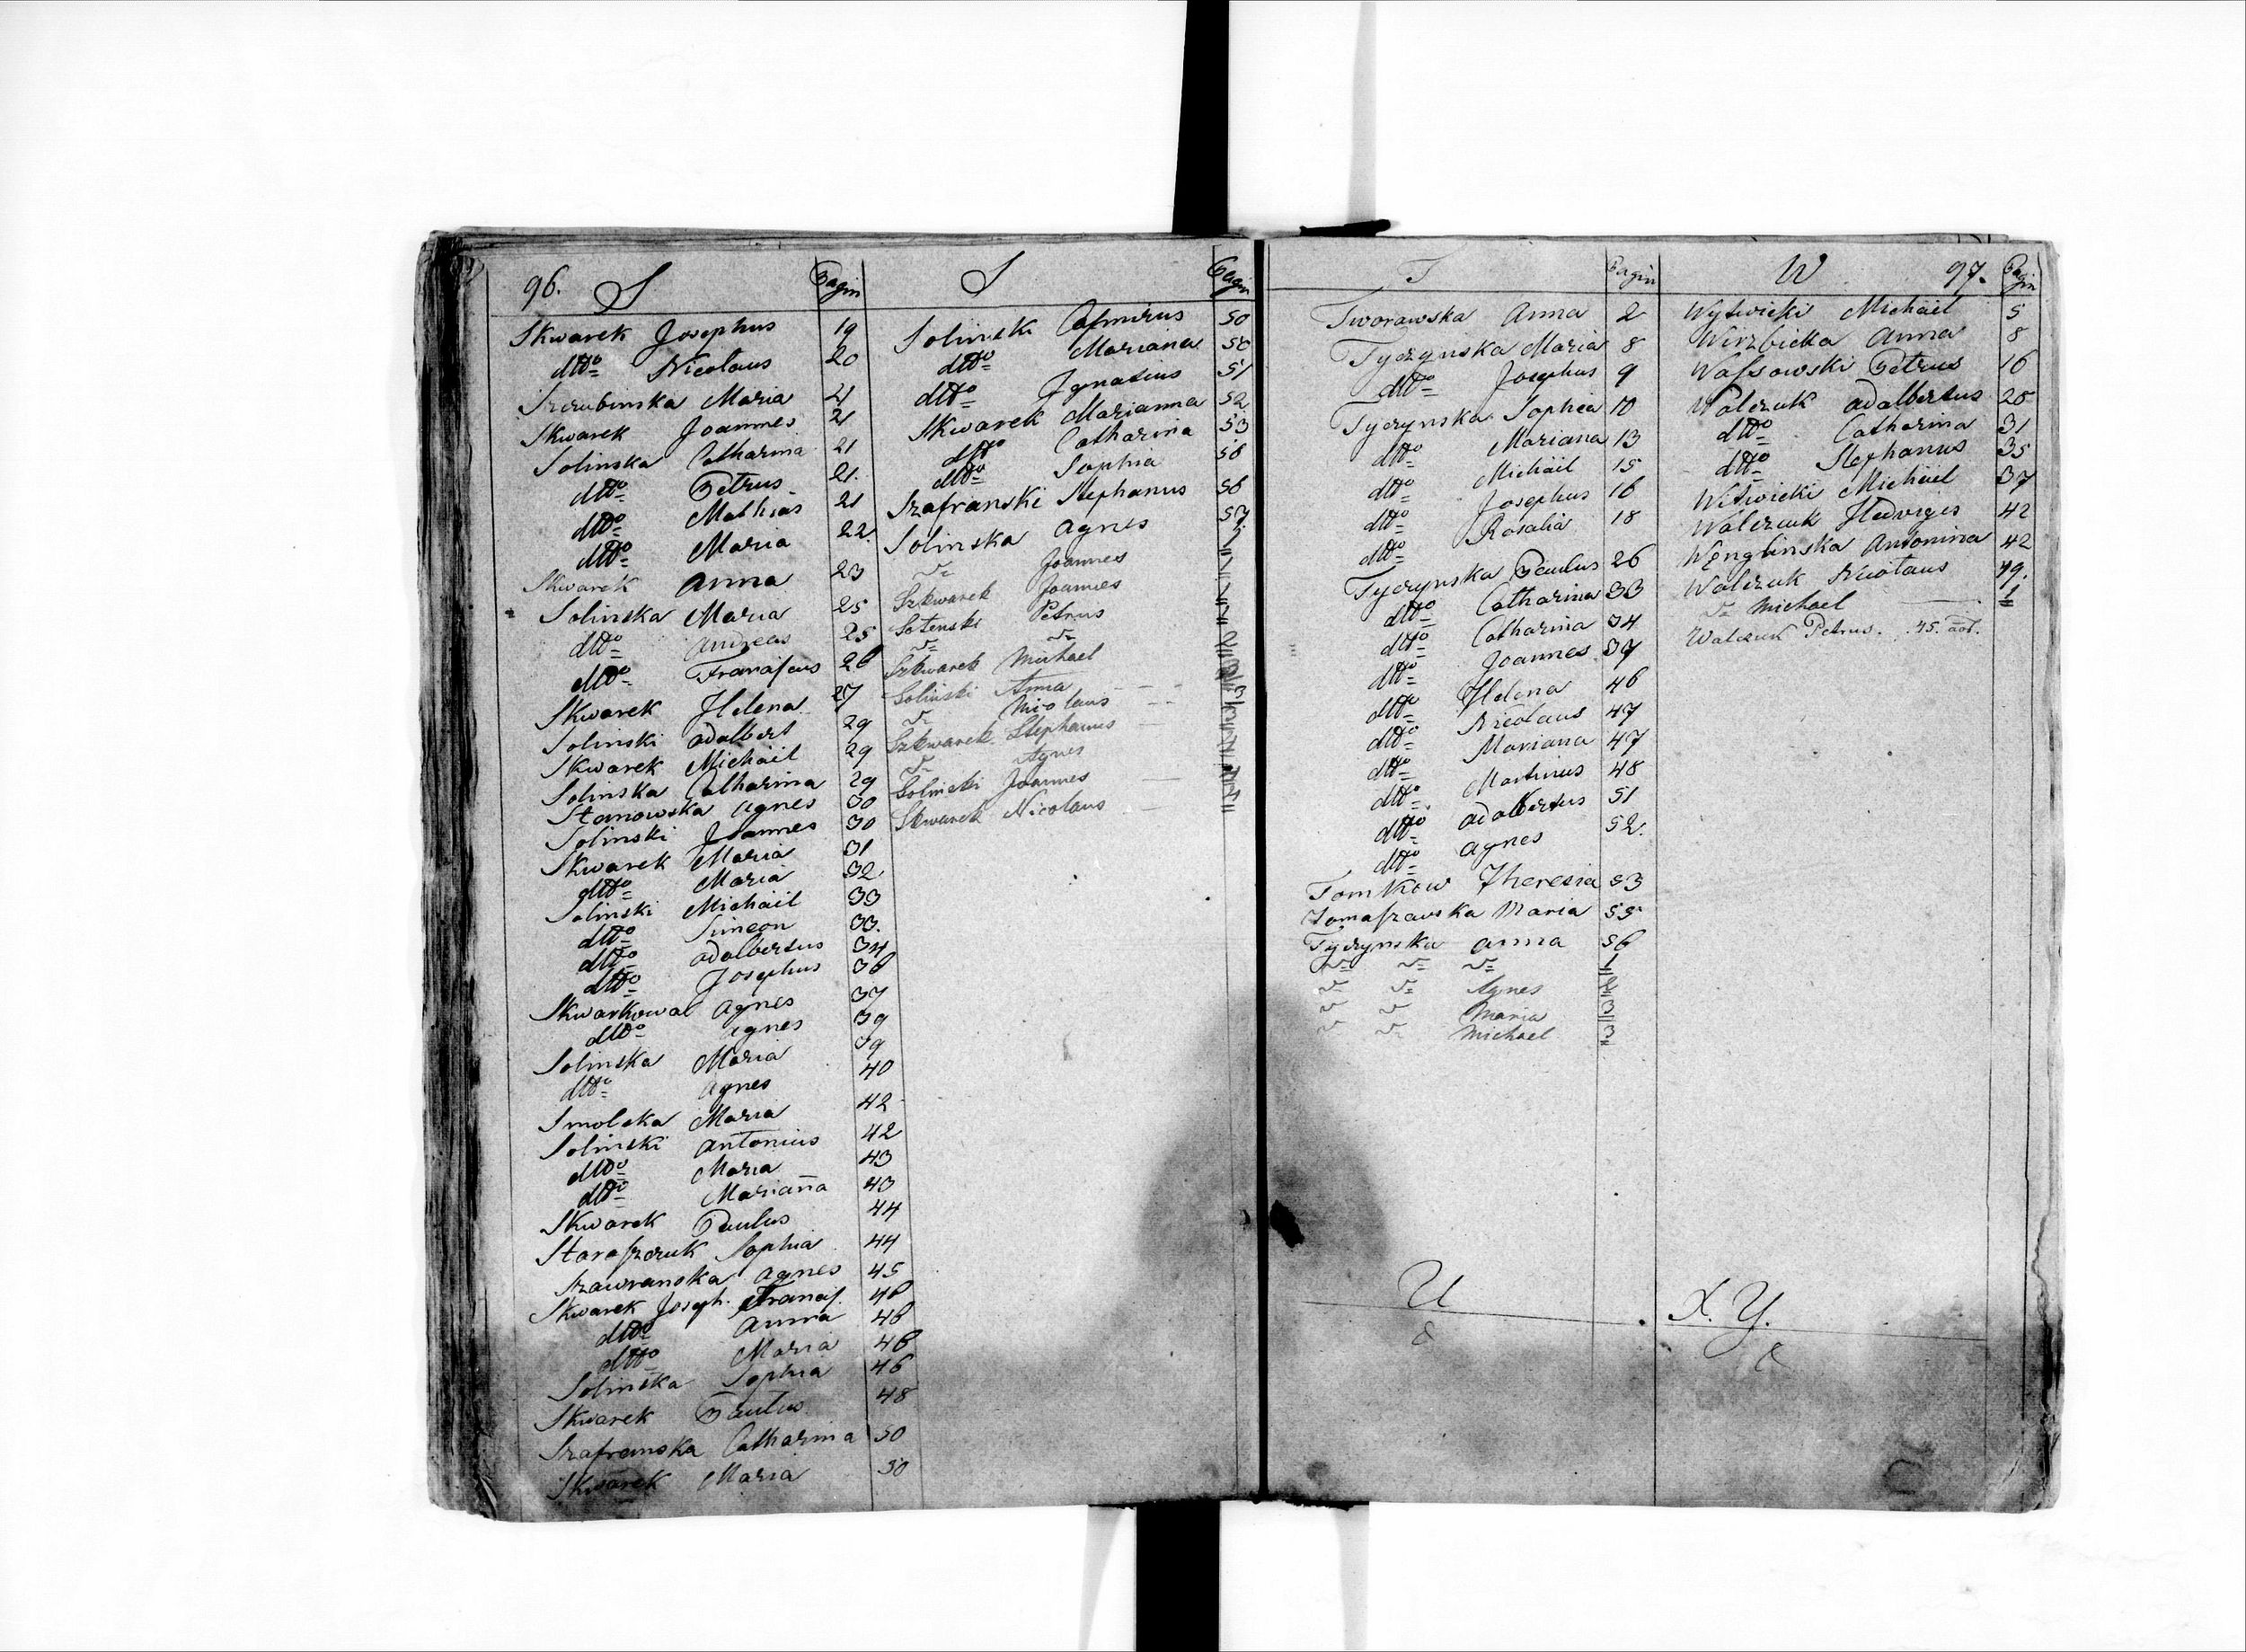 96. S Pagin
Skwarek Josephus 19
dtto Nicolaus 20
Szrubinska Maria 21
Skwarek Joannes 21
Solinska Catharina 21
dtto Petrus 21.
dtto Mathias 21
dtto Maria 22.
Skwarek Anna 23
Solinska Maria 25
dtto Andreas 25
dtto Francifcus 26
Skwarek Helena 27
Solinski Adalbert 29
Skwarek Michäil 29
Solinska Catharina 29
Stanowska Agnes 30
Solinski Joannes 30
Skwarek Maria 31
dtto Maria 32.
Solinski Michäil 33
dtto Simeon 33.
dtto Adalbertus 34
dtto Josephus 36
Skwarkowa Agnes 37
dtto Agnes 39
Solinska Maria 39
dtto Agnes 40
Smolska Maria 42
Solinski Antonius 42
dtto Maria 43
dtto Mariana 43
Skwarek Paulus 44
Starafzczuk Sophia 44
Szawranska Agnes 45
Skwarek Joseph. Francif. 46
dtto Anna 46
dtto Maria 46
Solinska Sophia 46
Skwarek Paulus 48
Szafranska Catharina 50
Skwarek Maria 50
S Pagin
Solinski Casmirus 50
dtto Mariana 50
dtto Ignatius 51
Skwarek Marianna 52
dtto Catharina 53
dtto Sophia 56
Szafranski Stephanus 56
Solinska Agnes 57
Joannes
Szkwarek Joannes
Sotenski Petrus
Szkwarek Michael
Solinski Anna
Nicolaus
Szkwarek Stephanus
Agnes
Solinski Joannes
Skwarek Nicolaus
T Pagin
Tworawska Anna 2
Tyczynska Maria 8
dtto Josephus 9
Tyczynska Sophia 10
dtto Mariana 13
dtto Michäil 15
dtto Josephus 16
dtto Rosalia 18
Tyczynska Paulus 26
dtto Catharina 33
dtto Catharina 34
dtto Joannes 37
dtto Helena 46
dtto Nicolaus 47
dtto Mariana 47
dtto Martinus 48
dtto Adalbertus 51
dtto Agnes 52.
Tomkow Theresia 53
Tomafzawska Maria 55
Tyczynska Anna 56
1
Agnes
Maria 3
Michael 3
U
W 97. Pagin
Wytwicki Michäil 5
Wirzbicka Anna 8
Wafsowski Petrus 16
Walczuk Adalbertus 28
dtto Catharina 31
dtto Stephanus 35
Witwicki Michäil 37
Walczuk Hedvigis 42
Wenglinska Antonina 42
Walczuk Nicolaus 49.
Michael 1
Walczuk Petrus. 45.
X. Y.